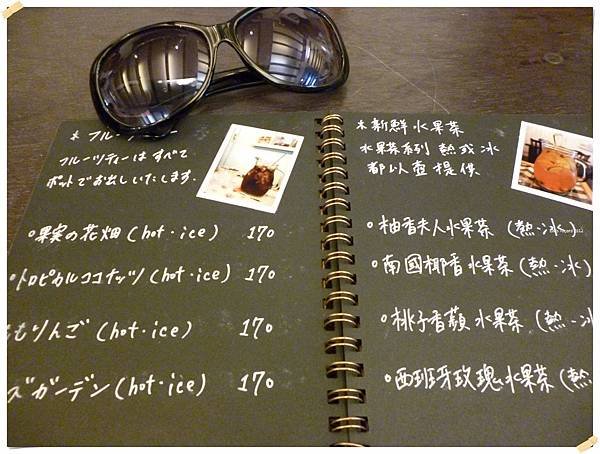 ＊フルーツティー
フルーツティーはすべて、
ポットでお出しいたします。
○果実の花畑(hot・ice) 170
○トロピカルココナッツ(hot・ice) 170
ももりんご(hot・ice) 170
ズガーデン(hot・ice) 170
＊新鮮水果茶
水果茶系列 熱或冰
都以壺提供
○柚香夫人水果茶(熱・冰)
○南國椰香水果茶(熱・冰)
○桃子香蘋水果茶(熱・冰
○西班牙玫瑰水果茶(熱